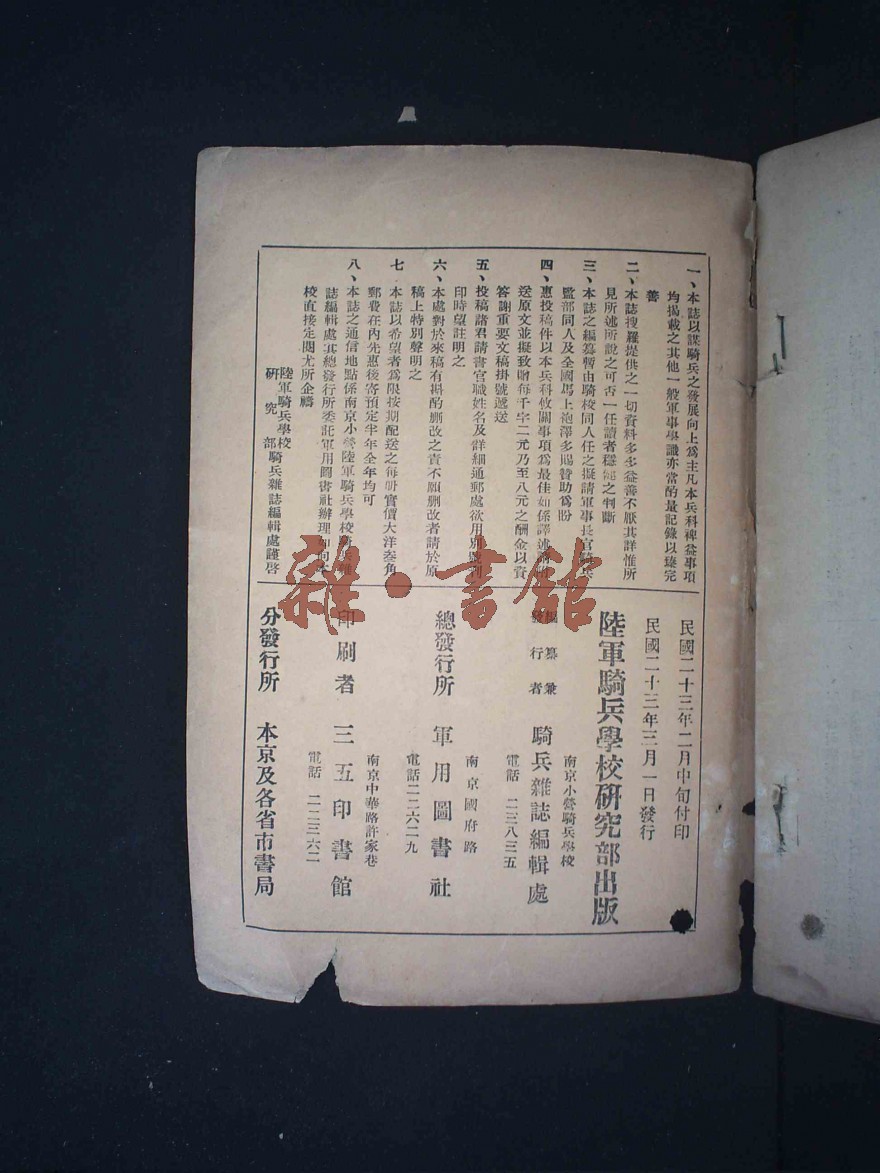 一、本誌以謀騎兵之發展向上爲主凡本兵科裨益事項
均揭載之其他一般軍事學識亦當酌量記錄以臻完
善
二、本誌搜羅提供之一切資料多多益善不厭其詳惟所
見所述所說之可否一任讀者穩健之判斷
三、本誌之編纂暫由騎校同人任之擬請軍事長官騎兵
監部同人及全國馬上袍澤多賜贊助爲盼
四、惠投稿件以本兵科攸關事項爲最佳如係譯述請附
送原文並擬致贈每千字二元乃至八元之酬金以資
答謝重要文稿掛號遞送
五、投稿諸君請書官職姓名及詳細通郵處欲用別號刊
印時望註明之
六、本處對於來稿有斟酌删改之責不願删改者請於原
稿上特別聲明之
七、本誌以希望者爲限按期配送之每册實價大洋叁角
郵費在內先惠後寄預定半年全年均可
八、本誌之通信地點係南京小營陸軍騎兵學校騎兵雜
誌編輯處其總發行所委託軍用圖書社辦理如向本
校直接定閱尤所企禱
陸軍騎兵學校
研究部
騎兵雜誌編輯處謹啓
民國二十三年二月中旬付印
民國二十三年三月一日發行
陸軍騎兵學校研究部出版
編纂兼
發行者
南京小營騎兵學校
騎兵雜誌編輯處
電話 二三八三五
總發行所
南京國府路
軍用圖書社
電話二二六二九
印刷者
南京中華路許家巷
三五印書館
電話 二二三六二
分發行所 本京及各省市書局
雜·書館